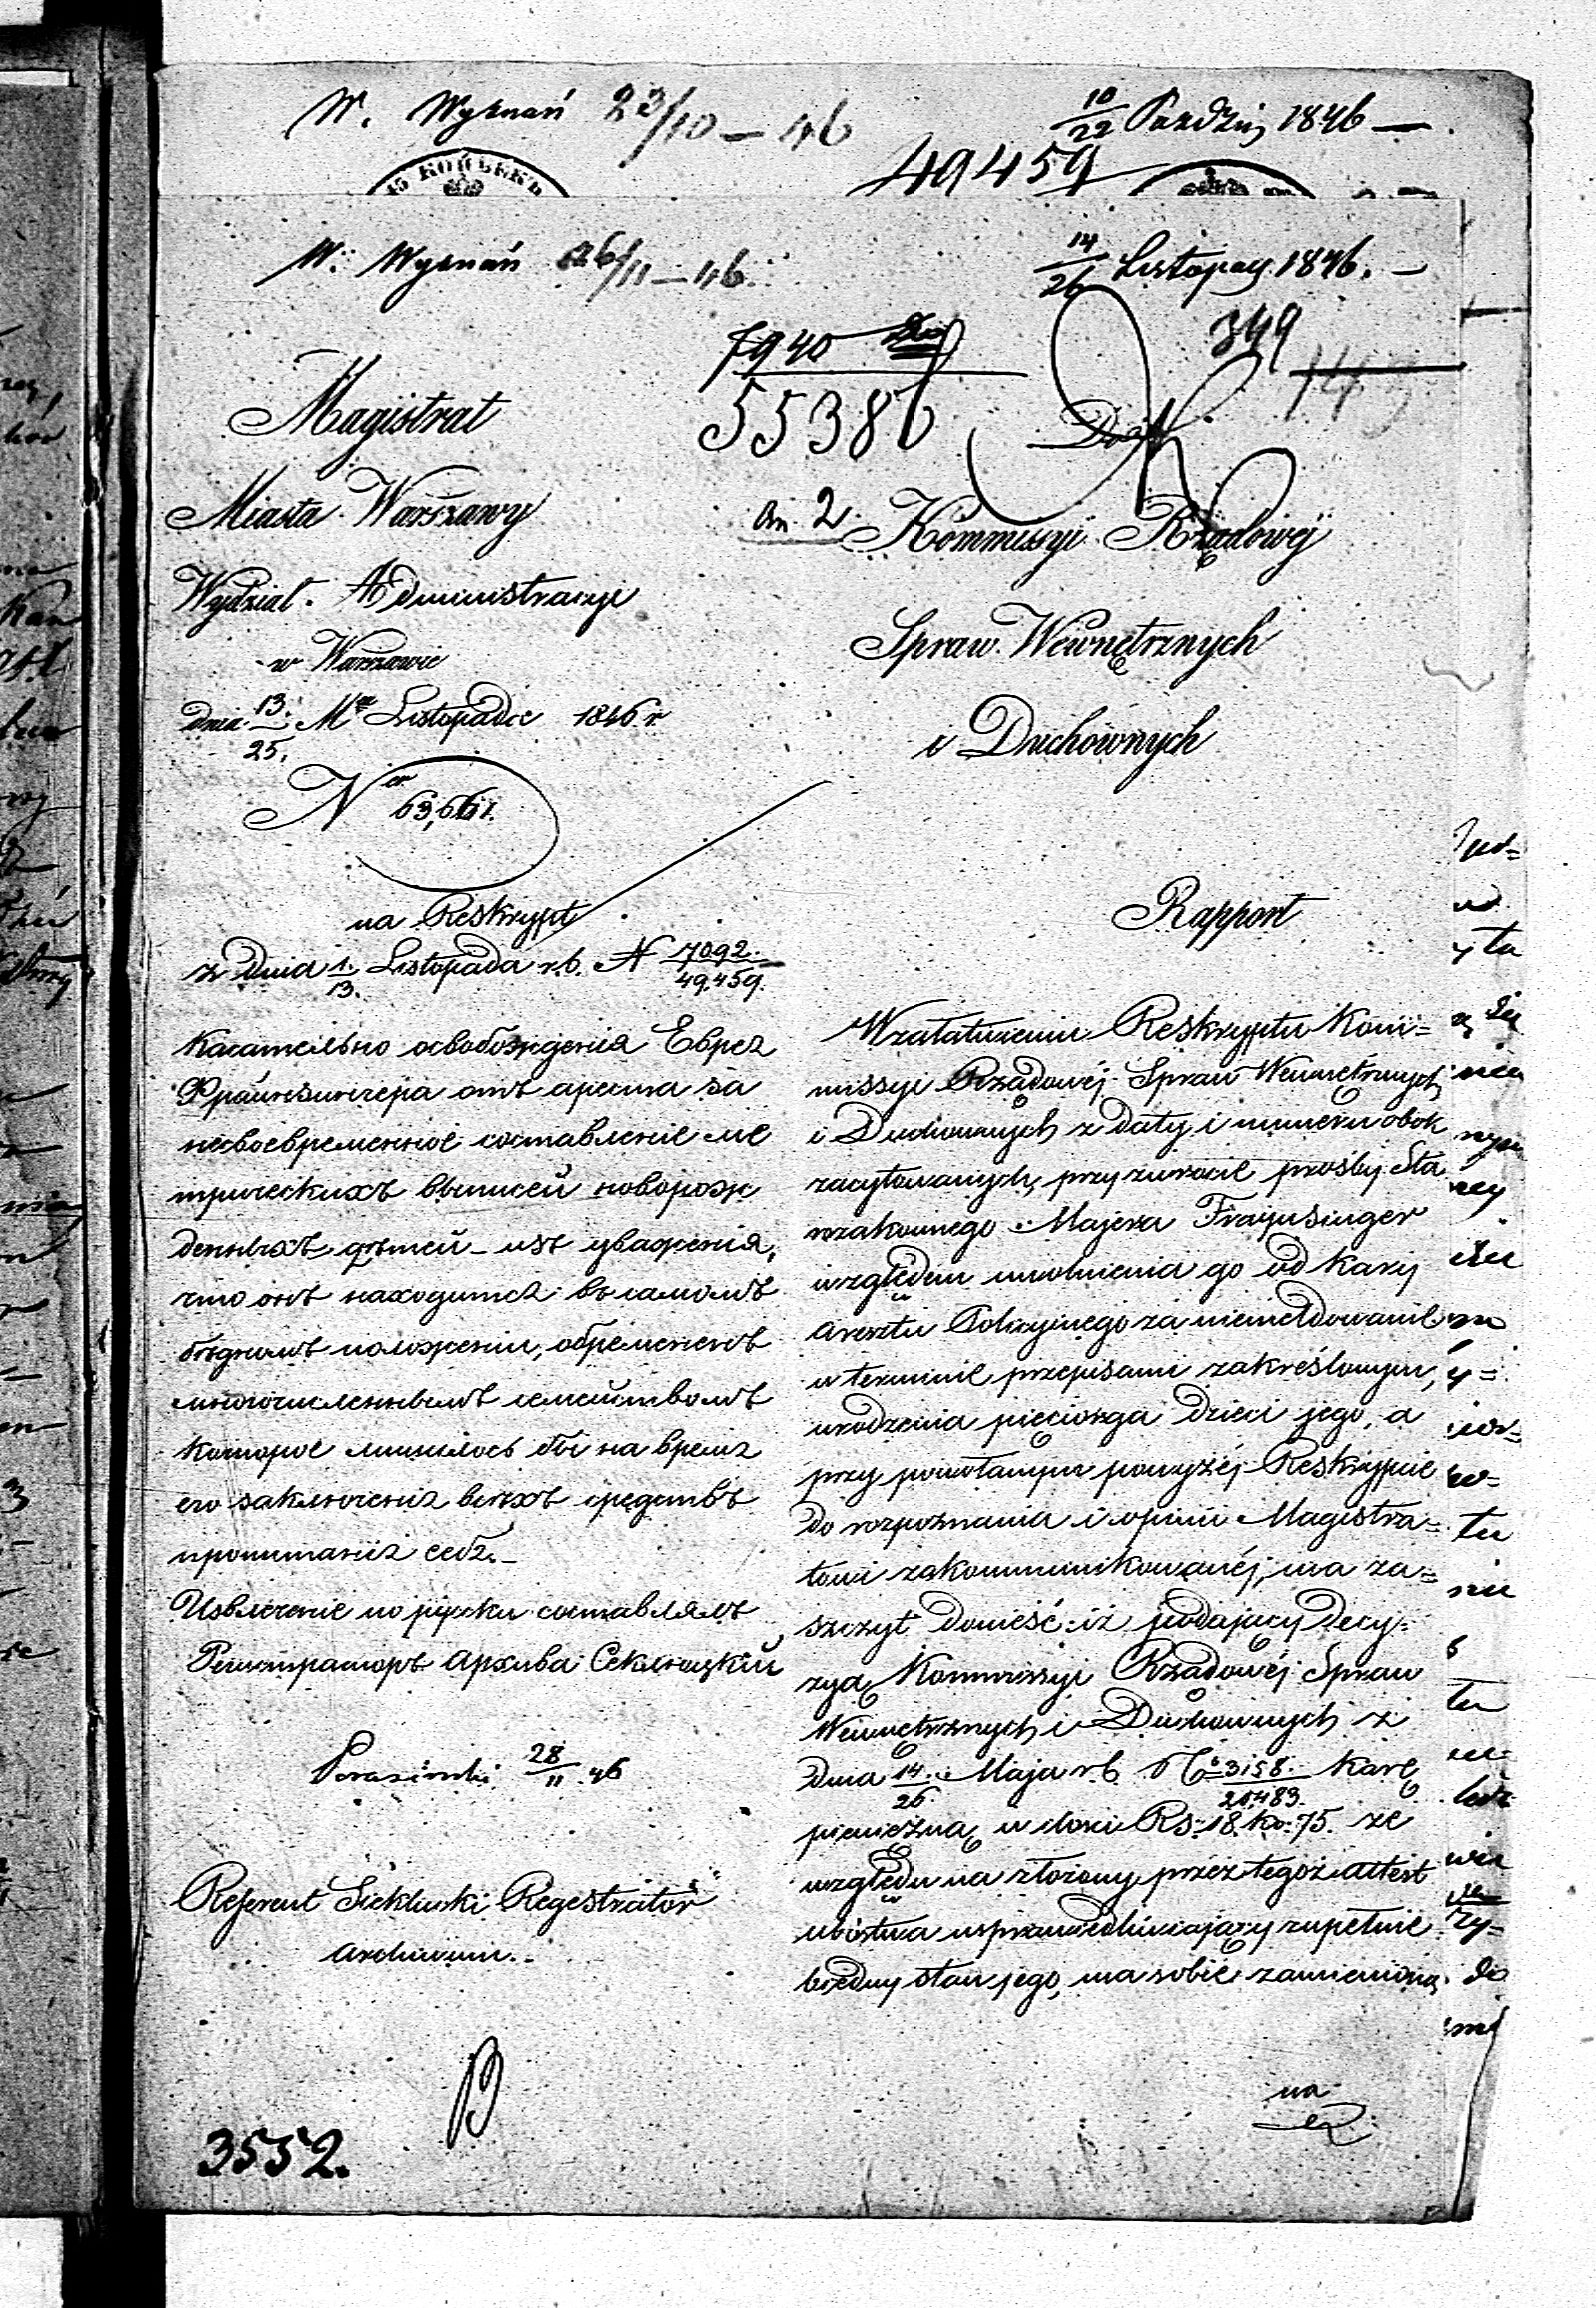 W. Wyznań 23/10 – 46
10/22 Paździer 1846 —
15 КОПѢЕКЪ
49459
W. Wyznań 26/11 – 46
14/26 Listopad 1846. —
349
7940
55386
Magistrat
Miasta Warszawy
Wydział Administracyi
w Warszawie
dnia 13/25. Mca Listopada 1846 r
Ner 63,661.
na Reskrypt
z dnia 1/13. Listopada r.b. N 7092/49,459.
Касательно освобожденія Еврея
отъ ареста за
несвоевременное составленіе ме
трическихъ выписей новорож
денныхъ дѣтей – изъ уваженія,
что онъ находится въ самомъ
бѣдномъ положеніи, обремененъ
многочисленнымъ семействомъ
которое лишилось бы на время
его заключенія всѣхъ средствъ
пропитанія себя. –
Извлеченіе по русски составлялъ
Регистраторъ Архива Секлюцкій
28/11 46
Referent Siekłucki Regestrator
Archiwum.
3552.
an. 2
Kommissyi Rządowéj
Spraw Wewnętrznych
i Duchownych
Rapport
W załatwieniu Reskryptu Kom=
missyi Rządowéj Spraw Wewnętrznych
i Duchownych z daty i numeru obok
zacytowanych, przy zwrocie prośby Sta
rozakonnego Majera Frajnsinger
względem uwolnienia go od kary
aresztu Policyjnego za niemeldowanie
w terminie przepisami zakreślonym,
urodzenia pięciorga dzieci jego, a
przy powołanym powyżéj Reskrypcie
do rozpoznania i opinii Magistra=
towi zakommunikowanéj, ma za=
szczyt donieść iż podający decy=
zyą Kommissyi Rządowéj Spraw
Wewnętrznych i Duchownych z
dnia 14/26. Maja r.b. No 3158./20,483. karę
pieniężną w ilości Rs. 18. ko: 75. ze
względu na złożony przez tegoż attest
ubóstwa usprawiedliwiający zupełnie
biedny stan jego, ma sobie zamienioną
na